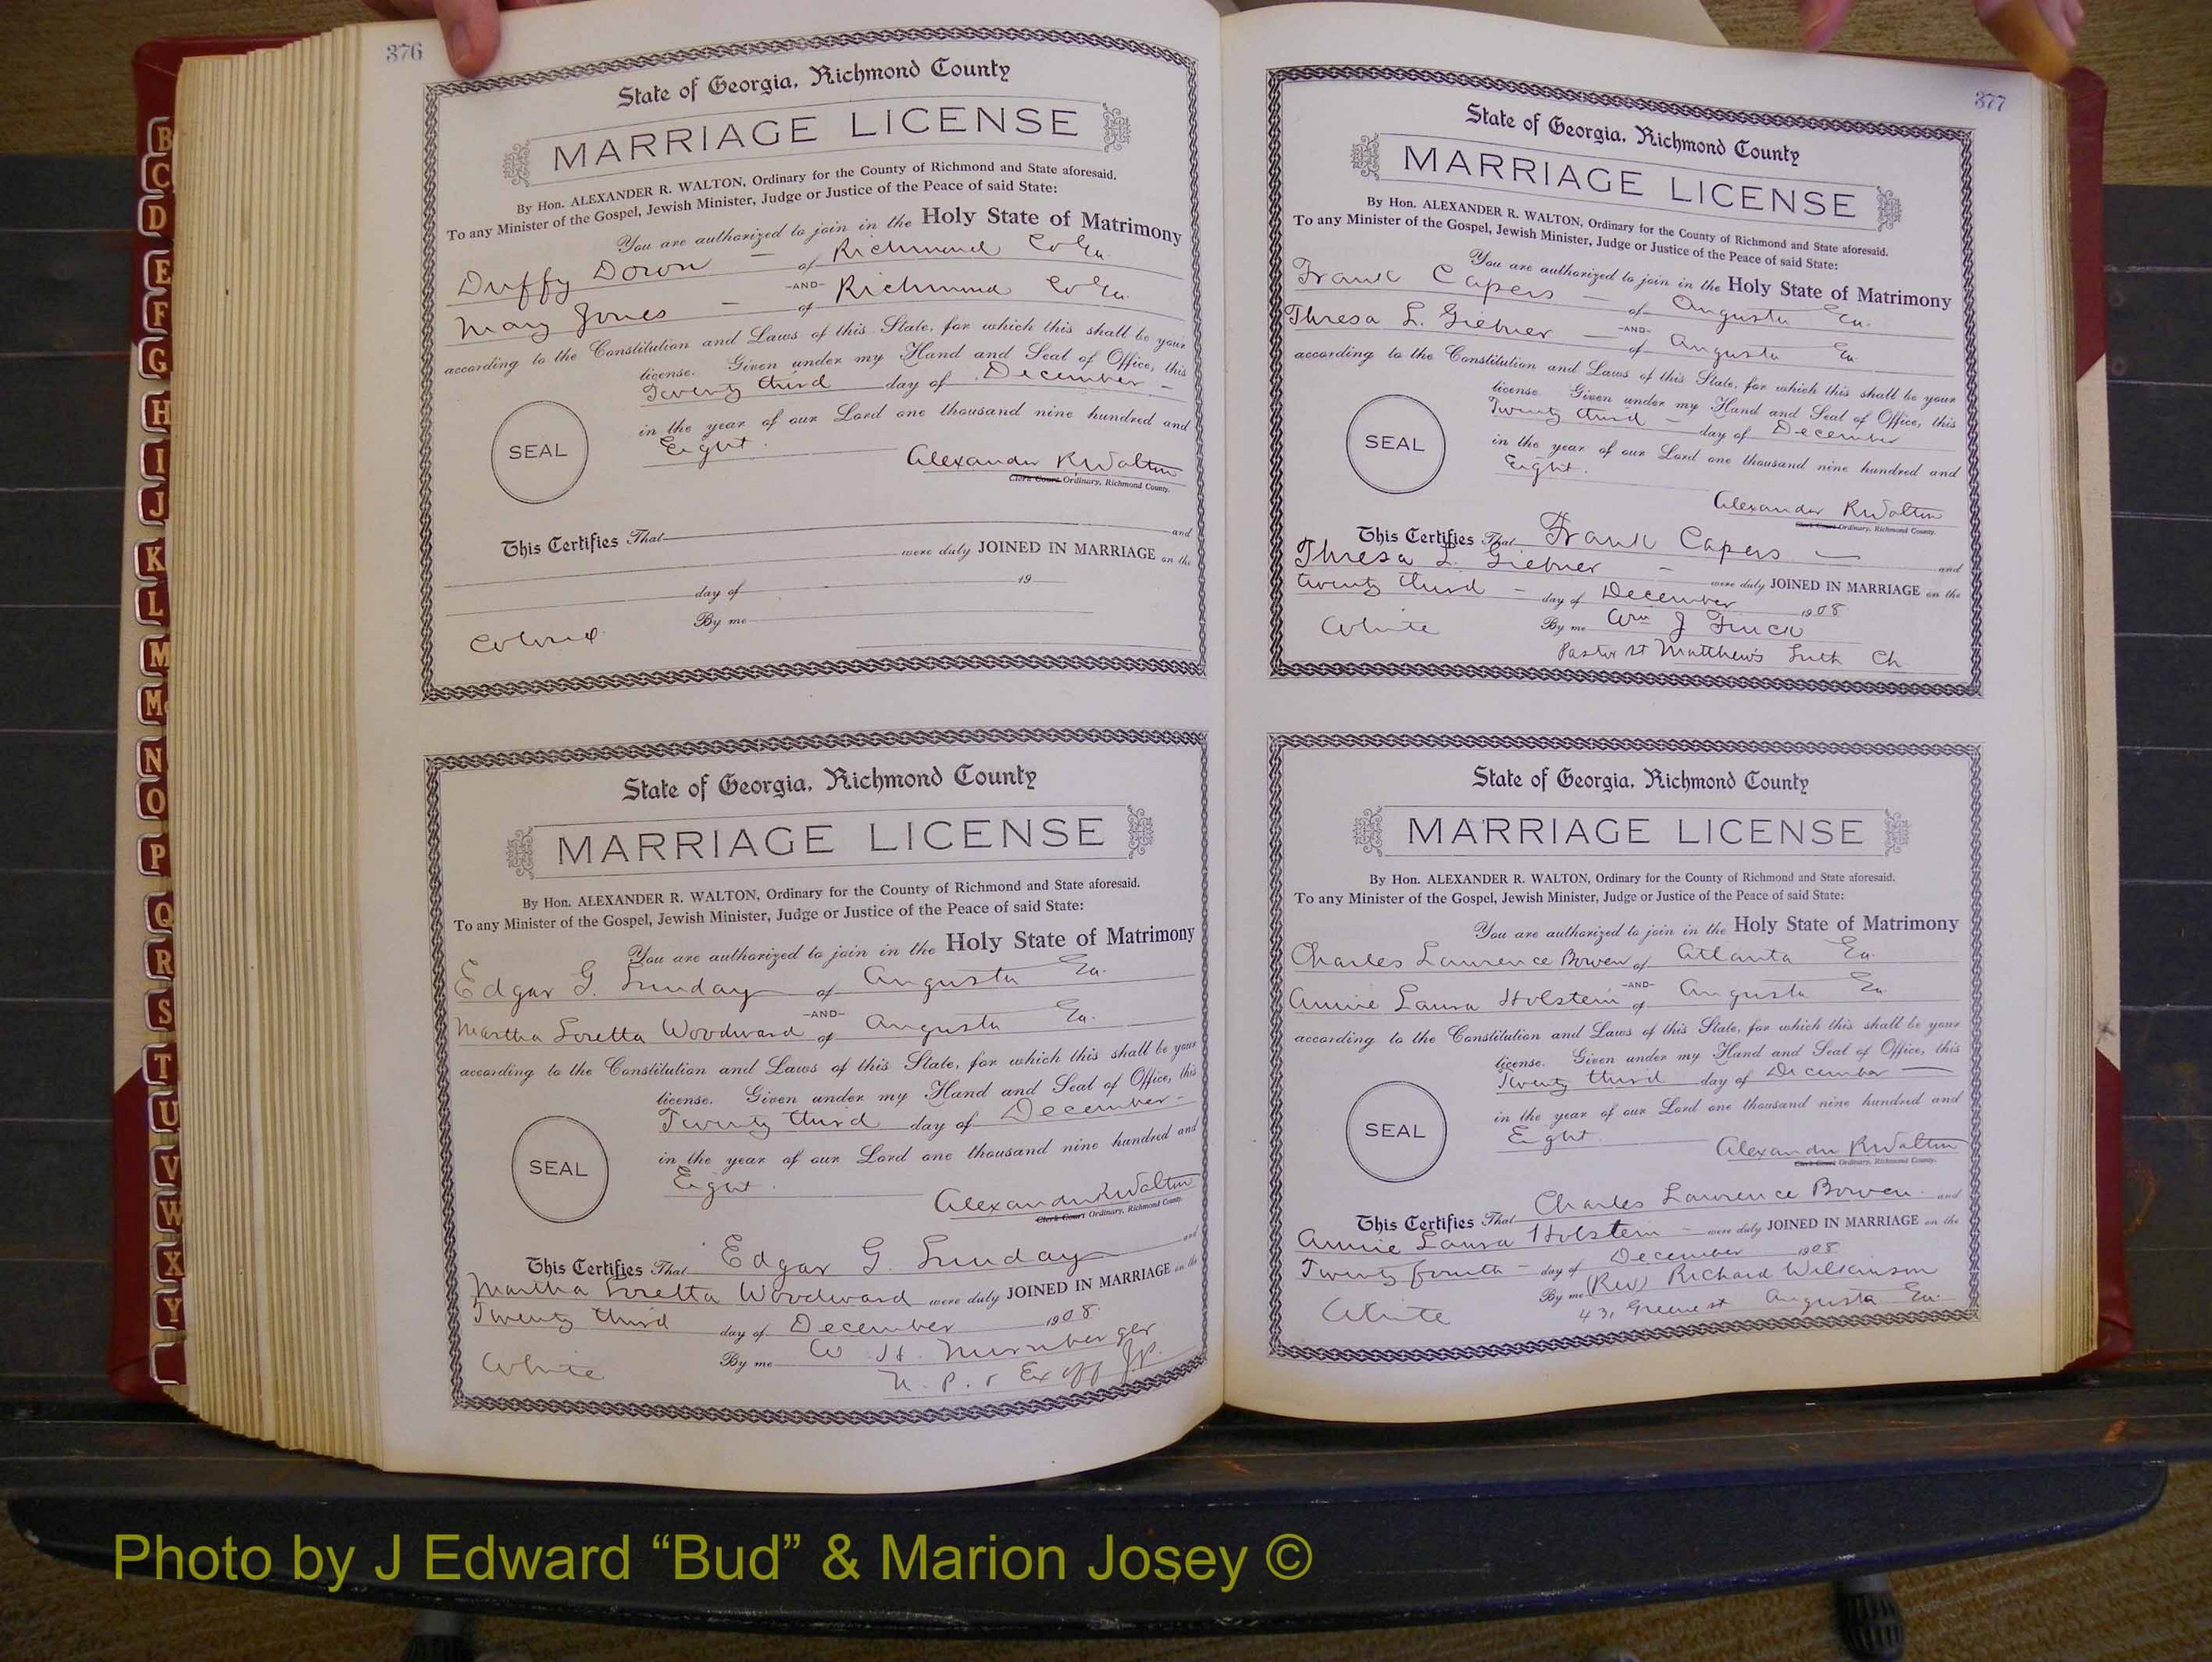 376
State of Georgia, Richmond County
MARRIAGE LICENSE
By Hon. ALEXANDER R. WALTON, Ordinary for the County of Richmond and State aforesaid.
To any Minister of the Gospel, Jewish Minister, Judge or Justice of the Peace of said State:
You are authorized to join in the Holy State of Matrimony
Duffy Doron – of Richmond Co Ga.
-AND-
Mary Jones – of Richmond Co Ga.
according to the Constitution and Laws of this State, for which this shall be your
license. Given under my Hand and Seal of Office, this
Twenty third day of December –
in the year of our Lord one thousand nine hundred and
Eight.
SEAL
Alexander R Walton
Clerk Court Ordinary, Richmond County.
This Certifies That and
were duly JOINED IN MARRIAGE on the
day of 19
By me
Colored
State of Georgia, Richmond County
MARRIAGE LICENSE
By Hon. ALEXANDER R. WALTON, Ordinary for the County of Richmond and State aforesaid.
To any Minister of the Gospel, Jewish Minister, Judge or Justice of the Peace of said State:
You are authorized to join in the Holy State of Matrimony
Edgar G. Lunday of Augusta Ga.
-AND-
Martha Loretta Woodward of Augusta Ga.
according to the Constitution and Laws of this State, for which this shall be your
license. Given under my Hand and Seal of Office, this
Twenty third day of December –
in the year of our Lord one thousand nine hundred and
Eight.
SEAL
Alexander R Walton
Clerk Court Ordinary, Richmond County.
This Certifies That Edgar G. Lunday and
Martha Loretta Woodward were duly JOINED IN MARRIAGE on the
Twenty third day of December 1908.
White By me W. H. Nurnberger
N. P. & Ex off J.P.
377
State of Georgia, Richmond County
MARRIAGE LICENSE
By Hon. ALEXANDER R. WALTON, Ordinary for the County of Richmond and State aforesaid.
To any Minister of the Gospel, Jewish Minister, Judge or Justice of the Peace of said State:
You are authorized to join in the Holy State of Matrimony
Frank Capers – of Augusta Ga.
-AND-
Thresa L. Giebner – of Augusta Ga
according to the Constitution and Laws of this State, for which this shall be your
license. Given under my Hand and Seal of Office, this
Twenty third – day of December
in the year of our Lord one thousand nine hundred and
Eight.
SEAL
Alexander R Walton
Clerk Court Ordinary, Richmond County.
This Certifies That Frank Capers – and
Thresa L. Giebner – were duly JOINED IN MARRIAGE on the
twenty third – day of December 1908
White By me Wm J Finck
Pastor St Matthew's Luth Ch
State of Georgia, Richmond County
MARRIAGE LICENSE
By Hon. ALEXANDER R. WALTON, Ordinary for the County of Richmond and State aforesaid.
To any Minister of the Gospel, Jewish Minister, Judge or Justice of the Peace of said State:
You are authorized to join in the Holy State of Matrimony
Charles Laurence Bowen of Atlanta Ga.
-AND-
Annie Laura Holstein of Augusta Ga.
according to the Constitution and Laws of this State, for which this shall be your
license. Given under my Hand and Seal of Office, this
Twenty third day of December –
in the year of our Lord one thousand nine hundred and
Eight
SEAL
Alexander R Walton
Clerk Court Ordinary, Richmond County.
This Certifies That Charles Laurence Bowen and
Annie Laura Holstein – were duly JOINED IN MARRIAGE on the
Twenty fourth – day of December 1908
White By me (Rev) Richard Wilkinson
431 Greene st Augusta Ga.
B
C
D
E
F
G
H
I
J
K
L
M
Mc
N
O
P
Q
R
S
T
U
V
W
X
Y
Photo by J Edward “Bud” & Marion Josey ©